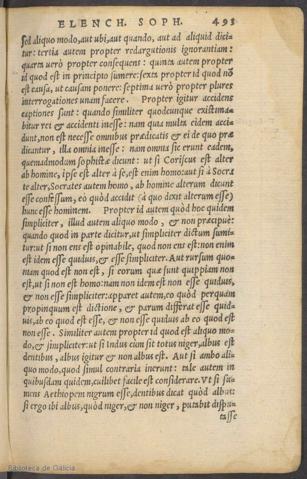 ELENCH. SOPH. 493
sed aliquo modo, aut ubi, aut quando, aut ad aliquid dici
tur: tertia autem propter redargutionis ignorantiam:
quarta uerò propter consequens: quinta autem propter
id quod est in principio sumere: sexta propter id quod nō
est causa, ut causam ponere: septima uerò propter plures
interrogationes unam facere. Propter igitur accidens
captiones sunt: quando similiter quodcunque existima-
bitur rei & accidenti inesse: nam quia multa eidem acci-
dunt, non est necesse omnibus prædicatis & ei de quo præ
dicantur, illa omnia inesse: nam omnia sic erunt eadem,
quemadmodum sophistæ dicunt: ut si Coriscus est alter
ab homine, ipse est alter à se, est enim homo: aut si à Socra
te alter, Socrates autem homo, ab homine alterum dicunt
esse confessum, eo quòd accidit (à quo dixit alterum esse)
hunc esse hominem. Propter id autem quòd hoc quidem
simpliciter, illud autem aliquo modo, & non præcipuè:
quando quod in parte dicitur, ut simpliciter dictum sumi-
tur: ut si non ens est opinabile, quod non ens est: non enim
est idem esse quiduis, & esse simpliciter. Aut rursum quo-
niam quod est non est, si eorum quæ sunt quippiam non
est, ut si non est homo: nam non idem est non esse quiduis,
& non esse simpliciter: apparet autem, eo quòd perquàm
propinquum est dictione, & parum differat esse quid-
uis, ab eo quod est esse, & non esse quiduis ab eo quod est
non esse. Similiter autem propter id quod est aliquo mo-
do, & simpliciter: ut si Indus cùm sit totus niger, albus est
dentibus, albus igitur & non albus est. Aut si ambo ali-
quo modo, quod simul contraria inerunt: tale autem in
quibusdam quidem, cuilibet facile est considerare. Vt si su-
mens Aethiopem nigrum esse, dentibus dicat quòd albus:
si ergo ibi albus, quòd niger, & non niger, putabit dispu-
tasse
Biblioteca de Galicia